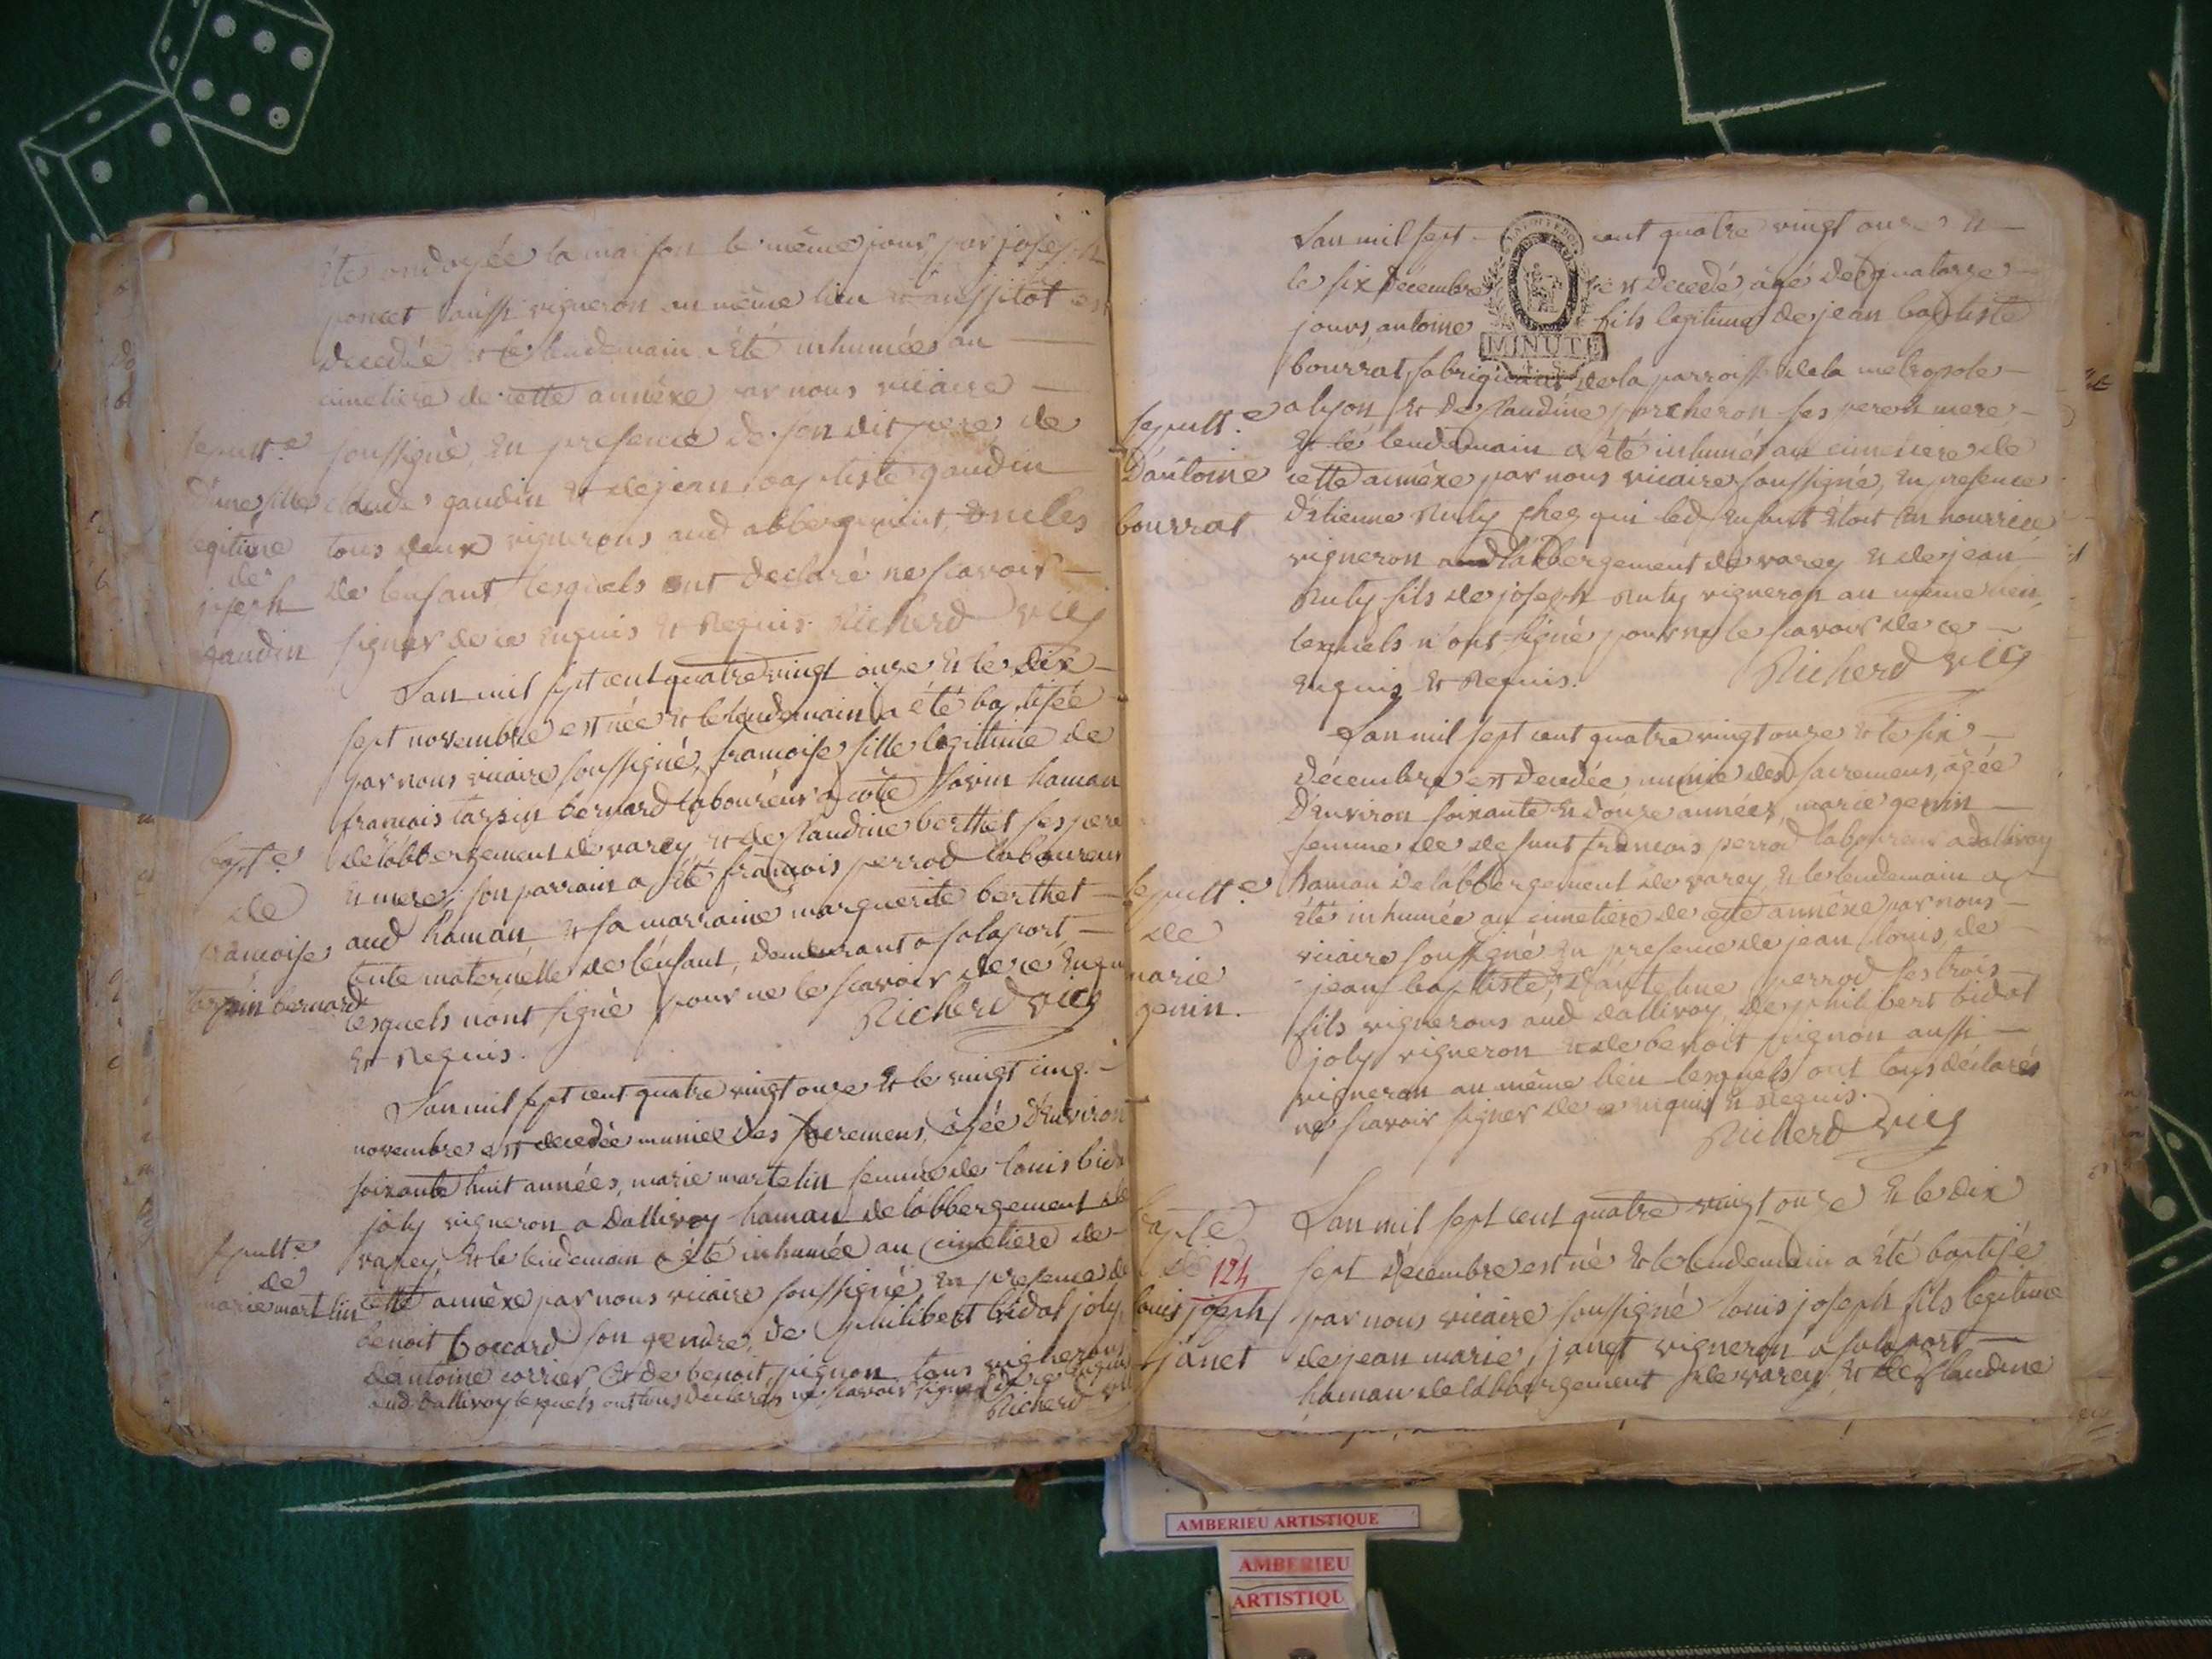 été ondoyée la maison le même jour par joseph
poncet aussi vigneron au même lieu et aussitôt est
decedée et le lendemain a été inhumée au
cimetiere de cette annéxe par nous vicaire
sepult.e
d'une fille
legitime
de
joseph
gaudin
soussigné, en presence de son dit pere de
claude gaudin et de jean baptiste gaudin
tous deux vignerons aud abbergement, oncles
de l'enfant lesquels ont declaré ne scavoir
signer de ce enquis et Requis. Richerd vic
L'an mil sept cent quatre vingt onze et le dix
sept novembre est née et le lendemain a été baptisée
par nous vicaire soussigné, francoise fille legitime de
francois tarpin bernard laboureur a côte savin hamau
de l'abbergement de varey et de claudine berthet ses pere
et mere, son parrain a été francois perrod laboureur
aud hamau et sa marraine marguerite berthet
tente maternelle de l'enfant, demeurant a salaport
lesquels n'ont signé pour ne le scavoir de ce enquis
et Requis. Richerd vic
bapt.e
de
francoise
tarpin bernard
L'an mil sept cent quatre vingt onze et le vingt cinq
novembre est decedée munie des sacremens, âgée d'environ
soixante huit années, marie martelin femme de louis bidal
joly vigneron a dallivoy hamau de l'abbergement de
varey, et le lendemain a été inhumée au cimetiere de
cette annéxe par nous vicaire soussigné, en presence de
benoit boccard son gendre, de philibert bidal joly,
d'antoine corrier et de benoit pignon tous vignerons
aud dallivoy lesquels ont tous declarés ne scavoir signer de ce enquis
Richerd vic
sepult.e
de
marie martelin
L'an mil sept cent quatre vingt onze et
le six décembre est decedé, âgé de quatorze
jours, antoine fils legitime de jean baptiste
MINUTE
bourrat fabriquant de la parroisse de la metropole
a lyon et de claudine porcheron ses pere et mere,
et le lendemain a été inhumé au cimetiere de
cette annéxe par nous vicaire soussigné, en presence
d'étienne Ruty chez qui led enfant étoit en nourrice
vigneron aud l'abbergement de varey et de jean
Ruty fils de joseph Ruty vigneron au même lieu,
lesquels n'ont signé pour ne le scavoir de ce
enquis et Requis. Richerd vic
sepult.e
d'antoine
bourrat
L'an mil sept cent quatre vingt onze et le six
décembre est decedée, munie des sacremens, âgée
d'environ soixante et douze années, marie genin
femme de defunt francois perrod laboureur a dallivoy
hamau de l'abbergement de varey, et le lendemain a
été inhumée au cimetiere de cette annéxe par nous
vicaire soussigné en presence de jean louis, de
jean baptiste, et d'antelme perrod ses trois
fils vignerons aud dallivoy, de philibert bidal
joly vigneron et de benoit pignon aussi
vigneron au même lieu lesquels ont tous déclarés
ne scavoir signer de ce enquis et Requis.
Richerd vic
sepult.e
de
marie
genin.
L'an mil sept cent quatre vingt onze et le dix
sept décembre est né et le lendemain a été baptisé
par nous vicaire soussigné louis joseph fils legitime
de jean marie janet vigneron a salaport
hamau de l'abbergement de varey et de claudine
bapt.e
de 124
louis joseph
janet
AMBERIEU ARTISTIQUE
AMBERIEU
ARTISTIQU